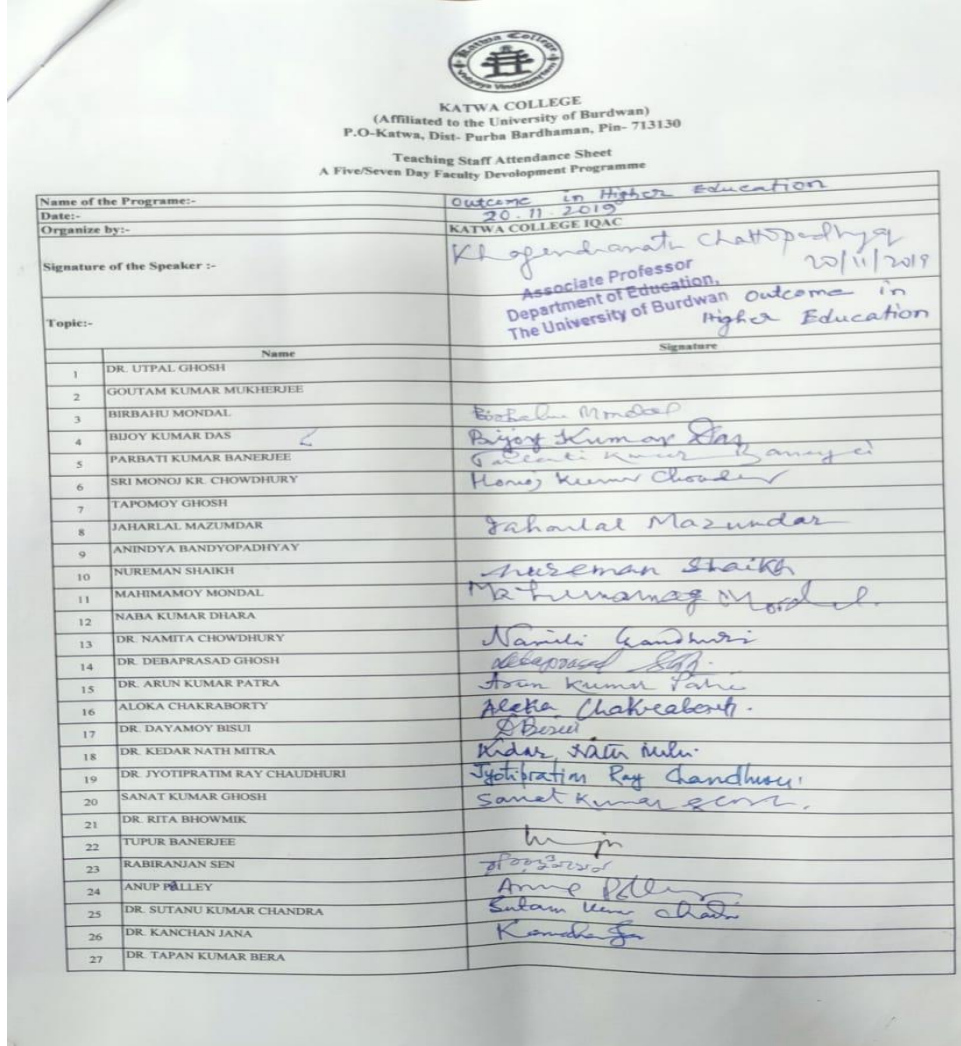 Katwa College
KATWA COLLEGE
(Affiliated to the University of Burdwan)
P.O-Katwa, Dist- Purba Bardhaman, Pin- 713130
Teaching Staff Attendance Sheet
A Five/Seven Day Faculty Devolopment Programme
Name of the Programe:- Outcome in Higher Education
Date:- 20.11.2019
Organize by:- KATWA COLLEGE IQAC
Signature of the Speaker :- Khagendranath Chattopadhyay
20/11/2019
Associate Professor
Department of Education,
The University of Burdwan
Topic:- Outcome in
Higher Education
Name Signature
1 DR. UTPAL GHOSH
2 GOUTAM KUMAR MUKHERJEE
3 BIRBAHU MONDAL Birbahu Mondal
4 BIJOY KUMAR DAS Bijoy Kumar Das
5 PARBATI KUMAR BANERJEE Parbati Kumar Banerjee
6 SRI MONOJ KR. CHOWDHURY Monoj Kumar
7 TAPOMOY GHOSH
8 JAHARLAL MAZUMDAR Jaharlal Mazumdar
9 ANINDYA BANDYOPADHYAY
10 NUREMAN SHAIKH Nureman Shaikh
11 MAHIMAMOY MONDAL Mahimamoy Mondal.
12 NABA KUMAR DHARA
13 DR. NAMITA CHOWDHURY
14 DR. DEBAPRASAD GHOSH Debaprasad
15 DR. ARUN KUMAR PATRA Arun Kumar Patra
16 ALOKA CHAKRABORTY Aloka
17 DR. DAYAMOY BISUI DBisui
18 DR. KEDAR NATH MITRA
19 DR. JYOTIPRATIM RAY CHAUDHURI Jyotipratim Ray Chaudhuri
20 SANAT KUMAR GHOSH Sanat Kumar
21 DR. RITA BHOWMIK
22 TUPUR BANERJEE
23 RABIRANJAN SEN
24 ANUP PALLEY
25 DR. SUTANU KUMAR CHANDRA
26 DR. KANCHAN JANA
27 DR. TAPAN KUMAR BERA